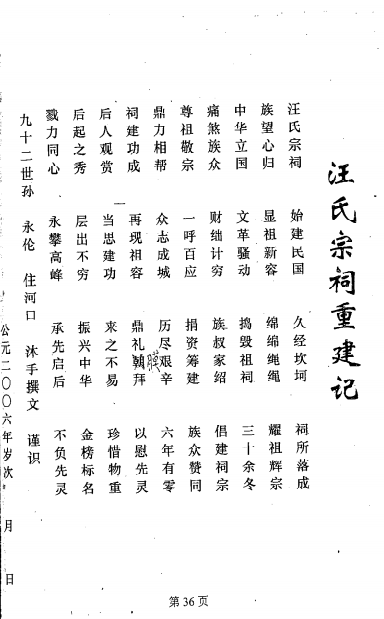 汪氏宗祠重建记
汪氏宗祠 始建民国 久经坎坷 祠所落成
族望心归 显祖新容 绵绵绳绳 耀祖辉宗
中华立国 文革骚动 捣毁祖祠 三十余冬
痛煞族众 财绌计穷 族叔家绍 倡建祠宗
尊祖敬宗 一呼百应 捐资筹建 族众赞同
鼎力相帮 众志成城 历尽艰辛 六年有零
祠建功成 再现祖容 鼎礼朝拜 以慰先灵
后人观赏 当思建功 来之不易 珍惜物重
后起之秀 层出不穷 振兴中华 金榜标名
戮力同心 永攀高峰 承先启后 不负先灵
九十二世孙 永伦 住河口 沐手撰文 谨识
公元二〇〇六年岁次 月 日
第 36 页